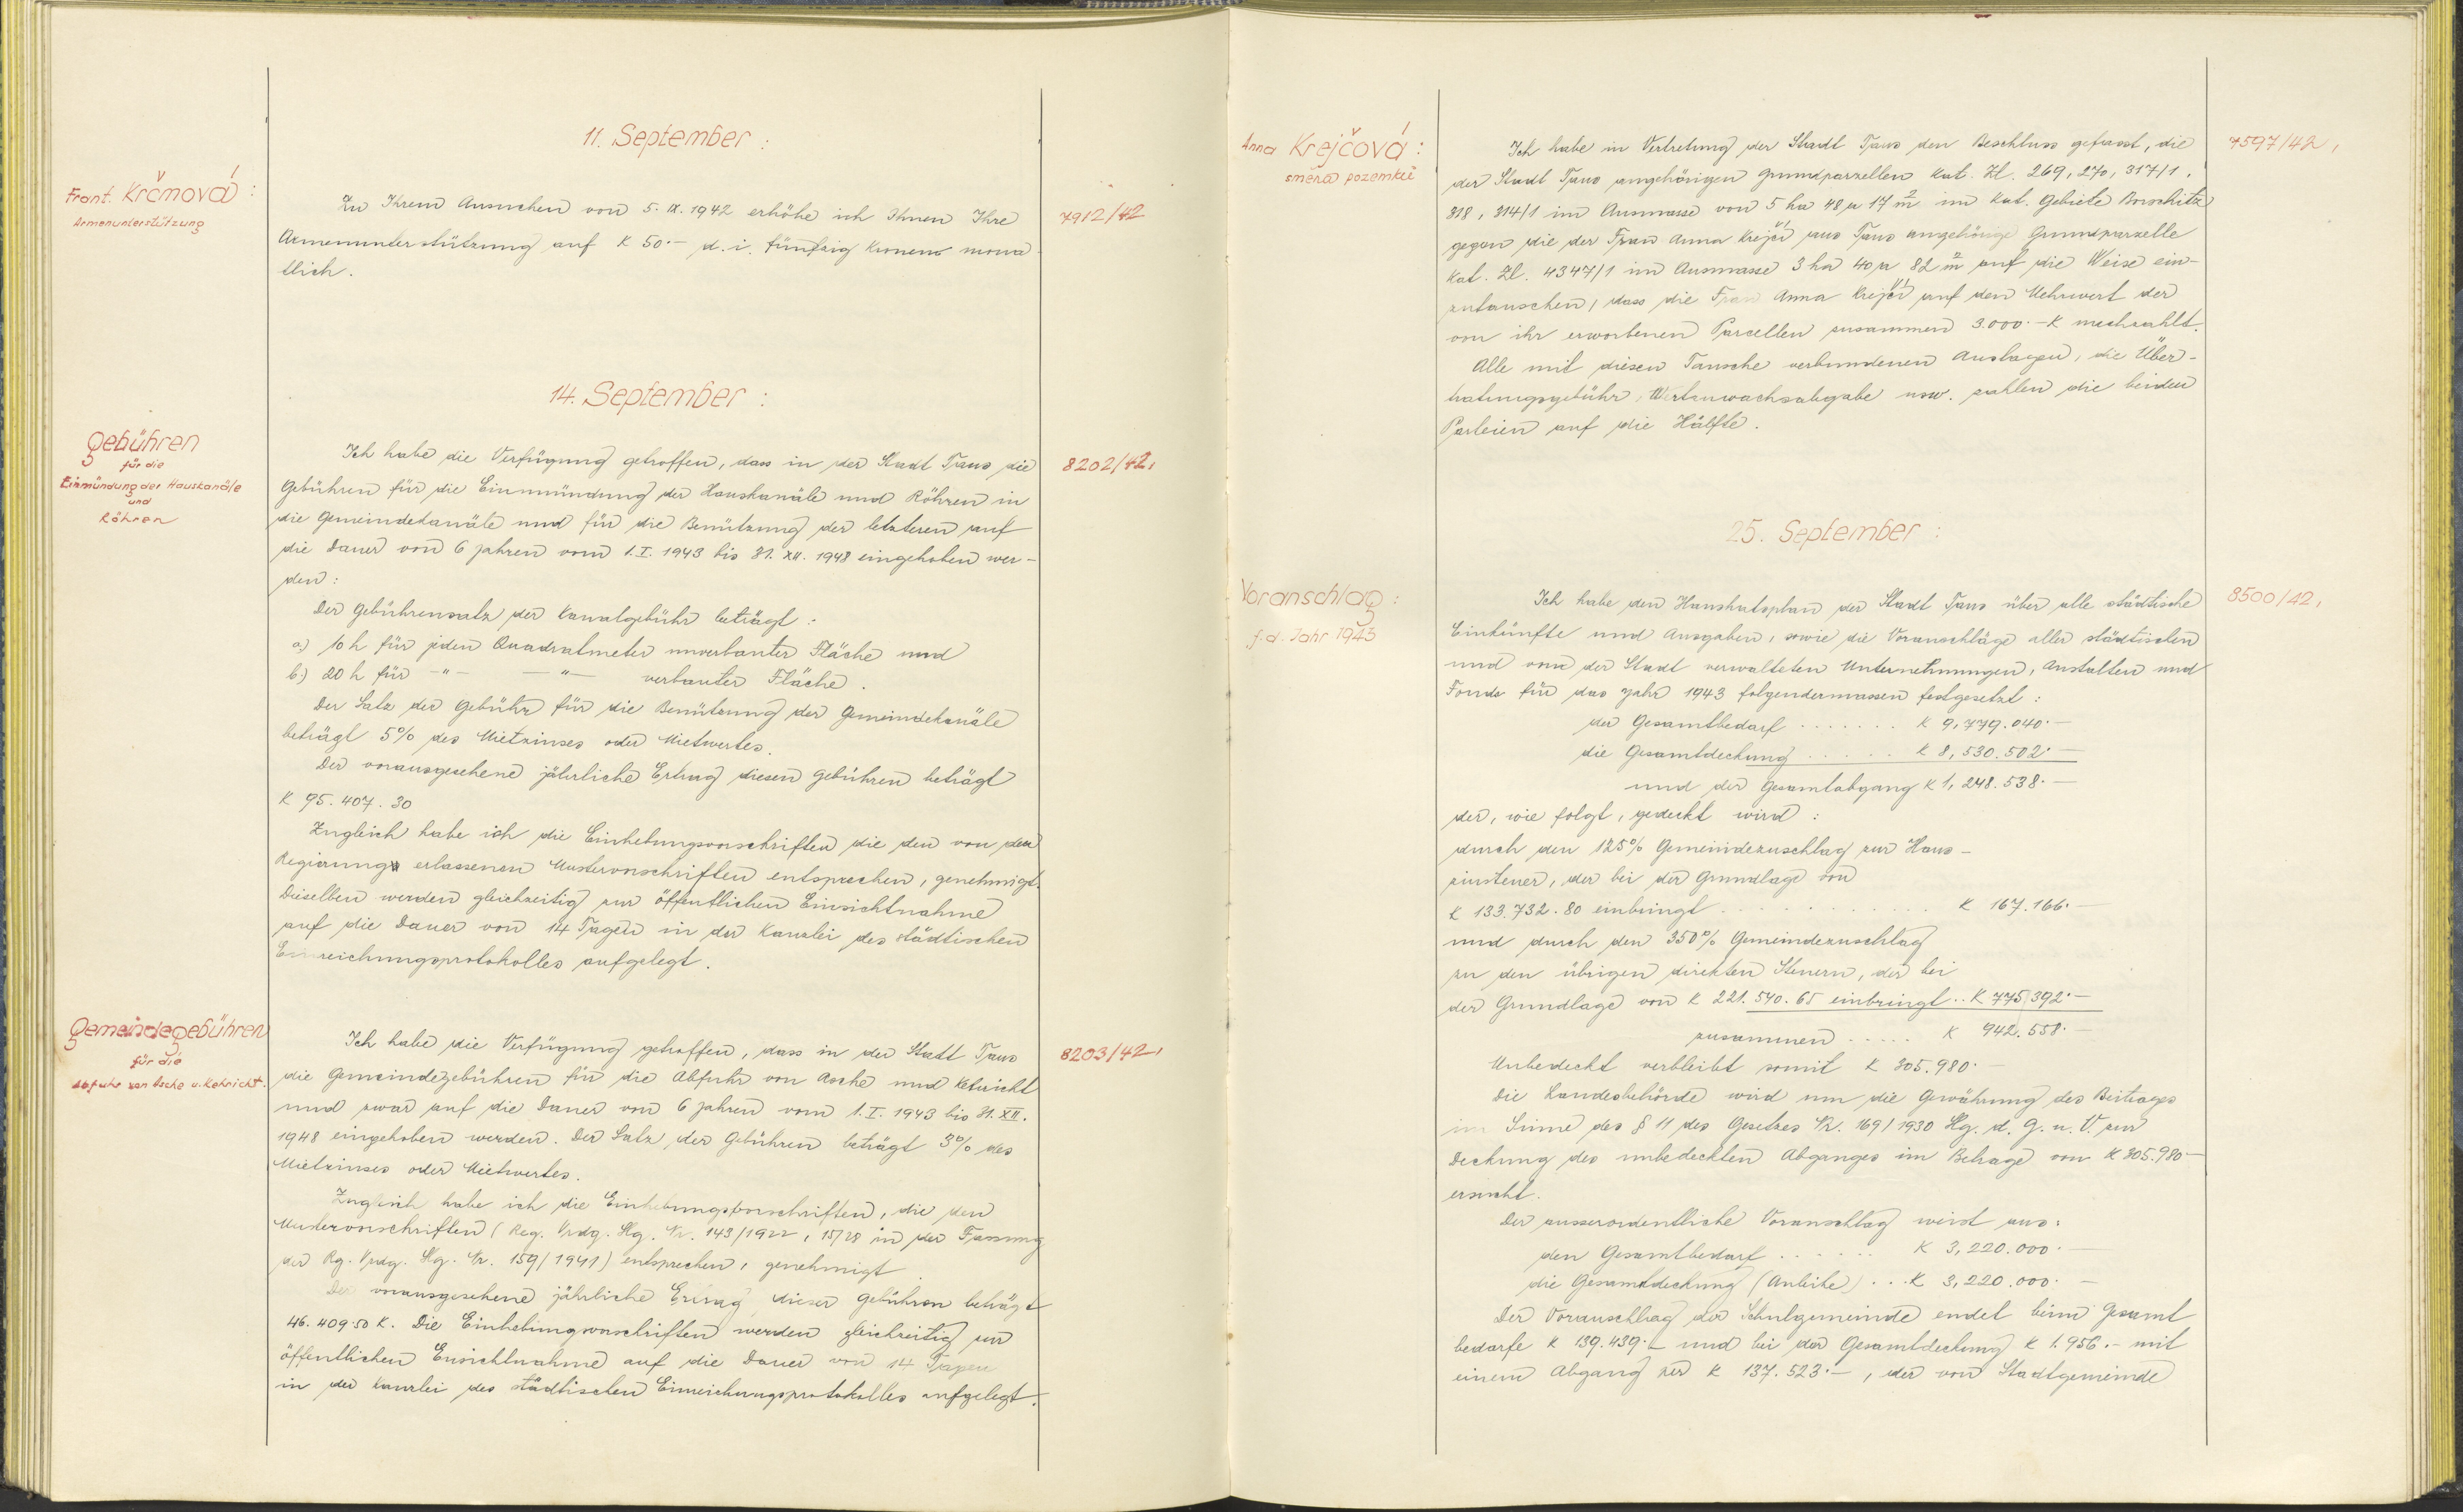 11. September :
Frant. Krčmová :
Armenunterstützung
Zu Ihrem Ansuchen vom 5. IX. 1942 erhöhe ich Ihnen Ihre
7912/42
Armenunterstützung auf K 50.- d. i. fünfzig Kronen mona-
tlich.
14. September :
Gebühren
für die
Einmündung der Hauskanäle
und
Röhren
Ich habe die Verfügung getroffen, dass in der Stadt Taus die
8202/42,
Gebühren für die Einmündung der Hauskanäle und Röhren in
die Gemeindekanäle und für die Benützung der letzteren auf
die Dauer von 6 Jahren vom 1. I. 1943 bis 31. XII. 1948 eingehoben wer-
den :
Der Gebührensatz der Kanalgebühr beträgt :
a.) 10 h für jeden Quadratmeter unverbauter Fläche und
b.) 20 h für -"- -"- verbauter Fläche.
Der Satz der Gebühr für die Benützung der Gemeindekanäle
beträgt 5% des Mietzinses oder Mietwertes.
Der vorausgesehene jährliche Ertrag diesen Gebühren beträgt
K 95.407.30
Zugleich habe ich die Einhebungsvorschriften die den von der
Regierung erlassenen Mustervorschriften entsprechen, genehmigt.
Dieselben werden gleichzeitig zur öffentlichen Einsichtnahme
auf die Dauer von 14 Tagen in der Kanzlei des städtischen
Einreichungsprotokolles aufgelegt.
Gemeindegebühren
für die
Abfuhr von Asche u. Kehricht.
Ich habe die Verfügung getroffen, dass in der Stadt Taus
8203/42,
die Gemeindegebühren für die Abfuhr von Asche und Kehricht
und zwar auf die Dauer von 6 Jahren vom 1. I. 1943 bis 31. XII.
1948 eingehoben werden. Der Satz der Gebühren beträgt 3% des
Mietzinses oder Mietwertes.
Zugleich habe ich die Einhebungsvorschriften, die den
Mustervorschriften (Reg. Vrdg. Slg. Nr. 143/1922, 15/28 in der Fassung
der Rg. Vrdg. Slg. Nr. 159/1941) entsprechen, genehmigt
Der vorausgesehene jährliche Ertrag dieser Gebühren beträgt
46.409.50 K. Die Einhebungsvorschriften werden gleichzeitig zur
öffentlichen Ensichtnahme auf die Dauer von 14 Tagen
in der Kanzlei des städtischen Einreichungsprotokolles aufgelegt.
Anna Krejčová :
směna pozemků
Ich habe in Vertretung der Stadt Taus den Beschluss gefasst, die
7597/42,
der Stadt Taus angehörigen Grundparzellen Kat. Zl. 269, 270, 317/1,
318, 314/1 im Ausmasse von 5 ha 48 a 17 m² im Kat. Gebiete Borschitz
gegen die der Frau Anna Krejčí aus Taus angehörige Grundparzelle
Kat. Zl. 4347/1 im Ausmasse 3 ha 40 a 82 m² auf die Weise ein-
zutauschen, dass die Frau Anna Krejčí auf den Mehrwert der
von ihr erworbenen Parcellen zusammen 3.000.-K nachzahlt.
Alle mit diesen Tausche verbundenen Auslagen, die Über-
tratungsgebühr, Wertzuwachsabgabe usw. zahlen die beiden
Parteien auf die Hälfte.
25. September :
Voranschlag :
f. d. Jahr 1943
Ich habe den Haushatsplan der Stadt Taus über alle städtische
8500/42,
Einkünfte und Ausgaben, sowie die Voranschläge aller städtischen
und von der Stadt verwalteten Unternehmungen, Anstalten und
Fonde für das Jahr 1943 folgendermassen festgesetzt :
der Gesamtbedarf ....... K 9,779.040.-
die Gesamtdeckung ...... K 8,530.502.-
und der Gesamtabgang K 1,248.538.-
der, wie folgt, gedeckt wird :
durch den 125% Gemeindezuschlag zur Haus-
zinsteuer, der bei der Grundlage von
K 133.732.80 einbringt ............ K 167.166.-
und durch den 350% Gemeindezuschlag
zu den übrigen direkten Steuern, der bei
der Grundlage von K 221.540.65 einbringt .. K 775.392.-
zusammen ..... K 942.558.-
Unbedeckt verbleibt somit K 305.980.-
Die Landesbehörde wird um die Gewährung des Beitrages
im Sinne des § 11 des Gesetzes Nr. 169/1930 Slg. d. G. u. V. zur
Deckung des unbedeckten Abganges im Betrage von K 305.980.-
ersucht.
Der ausserordentliche Voranschlag weist aus :
den Gesamtbedarf ...... K 3,220.000.-
die Gesamtdeckung (Anleihe) ... K 3,220.000.-
Der Voranschlag der Schulgemeinde endet beim Gesamt
bedarfe K 139.439.- und bei der Gesamtdeckung K 1.956.- mit
einem Abgang per K 137.523.-, der von Stadtgemeinde